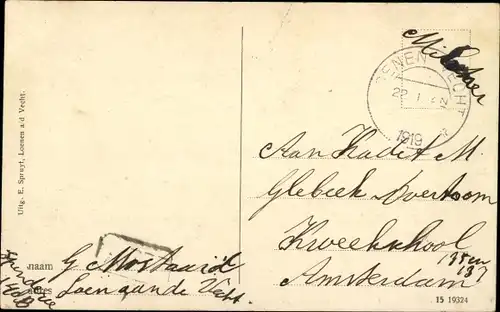 Militair
LOENEN VECHT
22 1 N
1919
Aan Kadet M.
Glebeek Overtoom
Kweekschool
135 en 137
Amsterdam
Uitg. E. Spruyt, Loenen a/d Vecht.
naam G Mostaard
adres Loen aan de Vecht.
15 19324